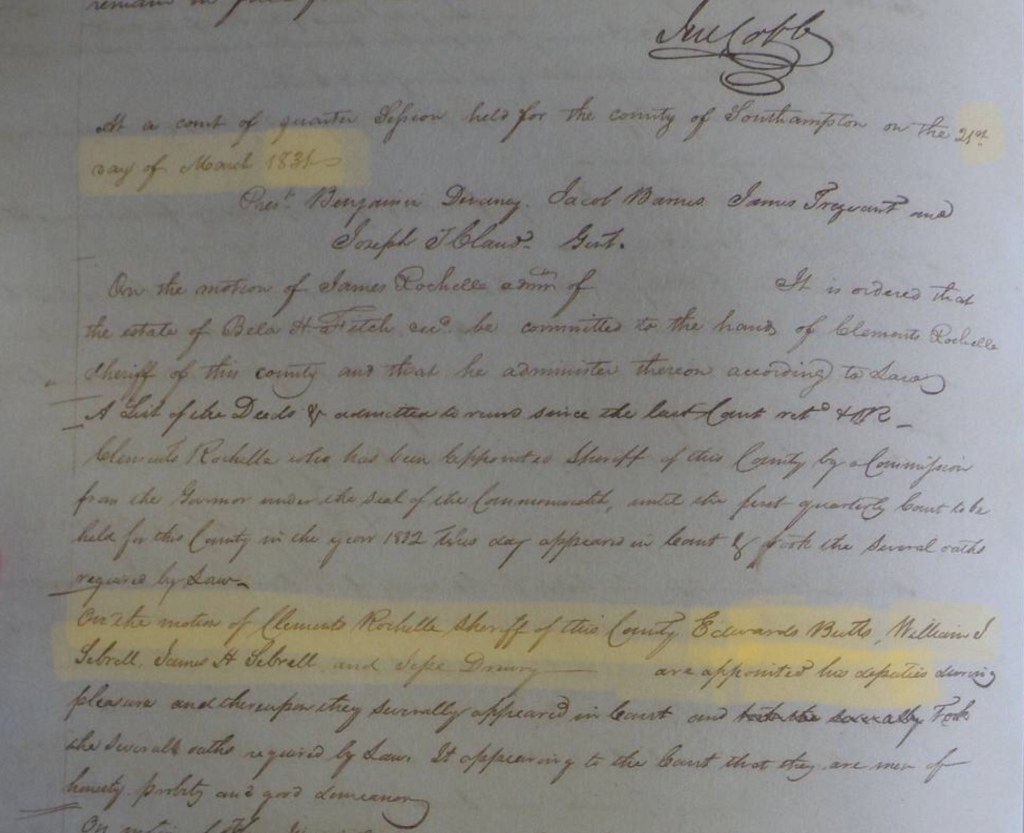 remain in
Jere Cobb
At a court of quarter Session held for the county of Southampton on the 21st
day of March 1831
Prest. Benjamin Devaney. Jacob Barnes James Trezvant and
Joseph T Claud Gent.
On the motion of James Rochelle admn of It is ordered that
the estate of Bela H Fitch decd. be committed to the hands of Clements Rochelle
Sheriff of this county and that he administer thereon according to Law
A List of the Deeds &c admitted to record since the last Court retd & OR
Clements Rochelle who has been appointed Sheriff of this County by a Commission
from the Governor under the seal of the Commonwealth, until the first quarterly Court to be
held for this County in the year 1832 this day appeared in Court & took the several oaths
required by Law
On the motion of Clements Rochelle Sheriff of this County Edwards Butts, William J
Sebrell, James H Sebrell and Jesse Drewry are appointed his deputies during
pleasure and thereupon they severally appeared in Court and severally Took
the severall oaths required by Law. It appearing to the Court that they are men of
honesty probity and good demeanor
On motion of